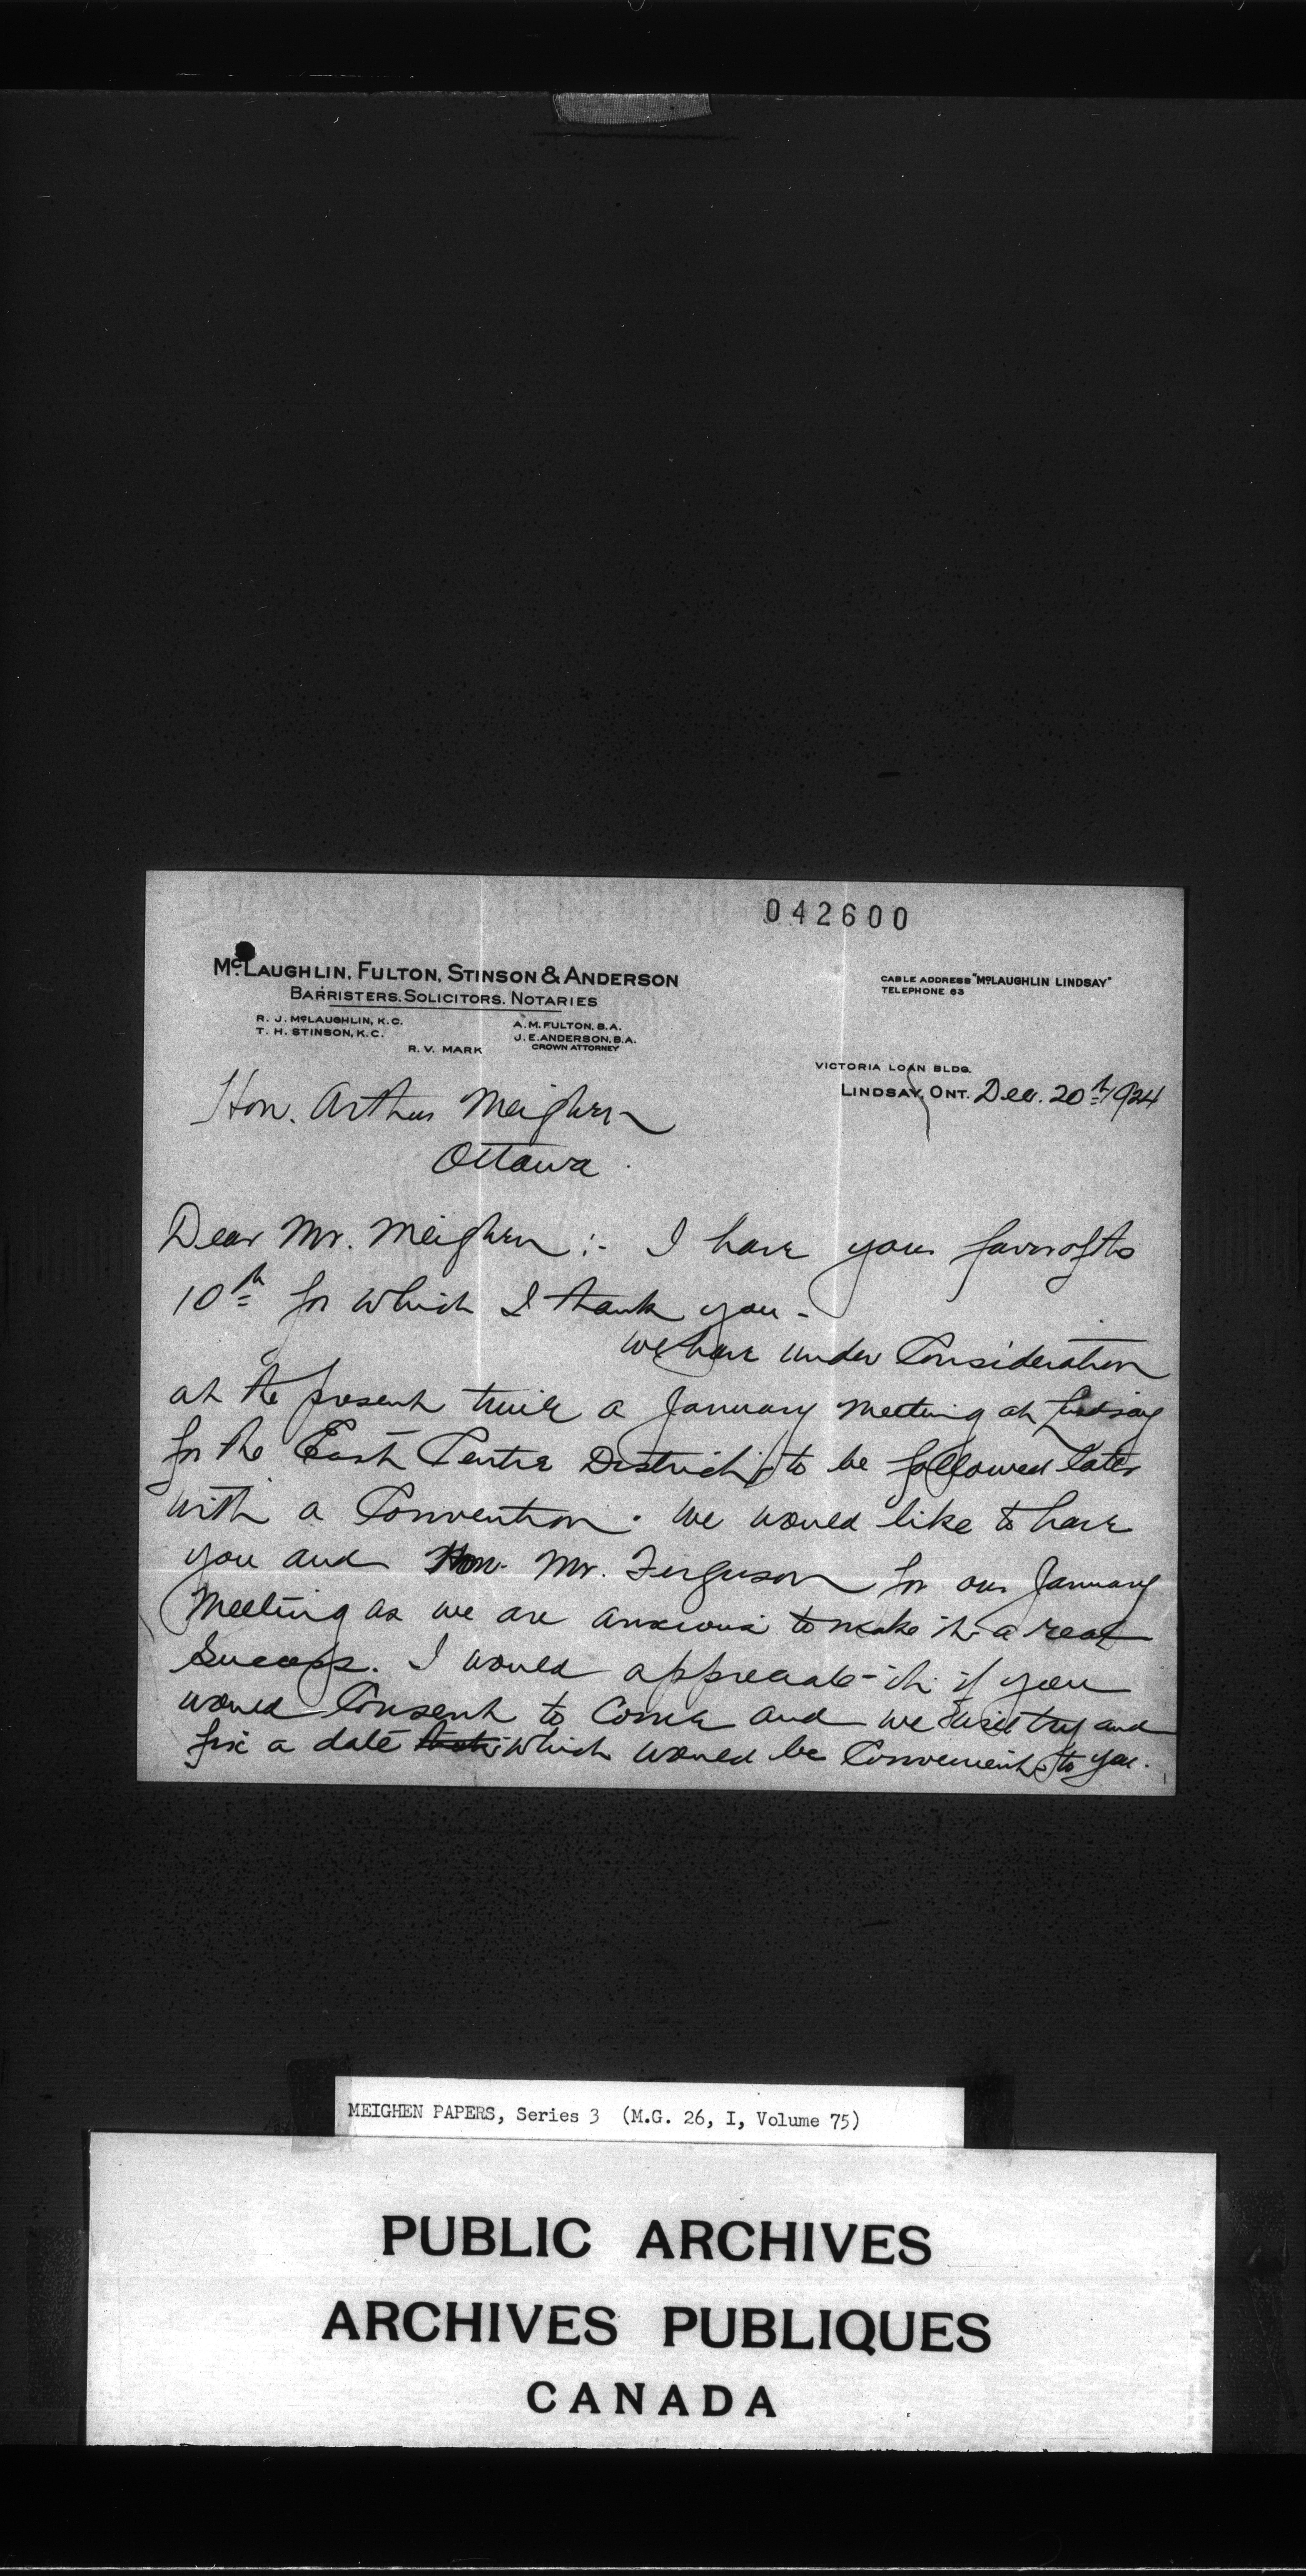 042600
McLAUGHLIN, FULTON, STINSON & ANDERSON
BARRISTERS. SOLICITORS. NOTARIES
CABLE ADDRESS "McLAUGHLIN LINDSAY"
TELEPHONE 63
R. J. McLAUGHLIN, K.C.
T. H. STINSON, K.C.
A. M. FULTON, B.A.
J. E. ANDERSON, B.A.
CROWN ATTORNEY
R. V. MARK
VICTORIA LOAN BLDG.
LINDSAY, ONT. Dec. 20th 1924
Hon. Arthur Meighen
Ottawa
Dear Mr. Meighen :- I have your favor of the
10th for which I thank you -
We have under Consideration
at the present time a January meeting at Lindsay
for the East Centre District to be followed later
with a Convention. We would like to have
you and Hon. Mr. Ferguson for our January
Meeting as we are anxious to make it a real
Success. I would appreciate it if you
would Consent to Come and we will try and
fix a date which would be Convenient to you.
MEIGHEN PAPERS, Series 3 (M.G. 26, I, Volume 75)
PUBLIC ARCHIVES
ARCHIVES PUBLIQUES
CANADA